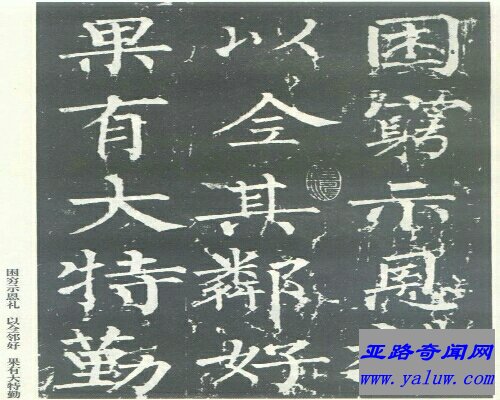 困窮示恩
以全其鄰好
果有大特勤
困穷示恩礼 以全邻好 果有大特勤
亚路奇闻网
www.yaluw.com